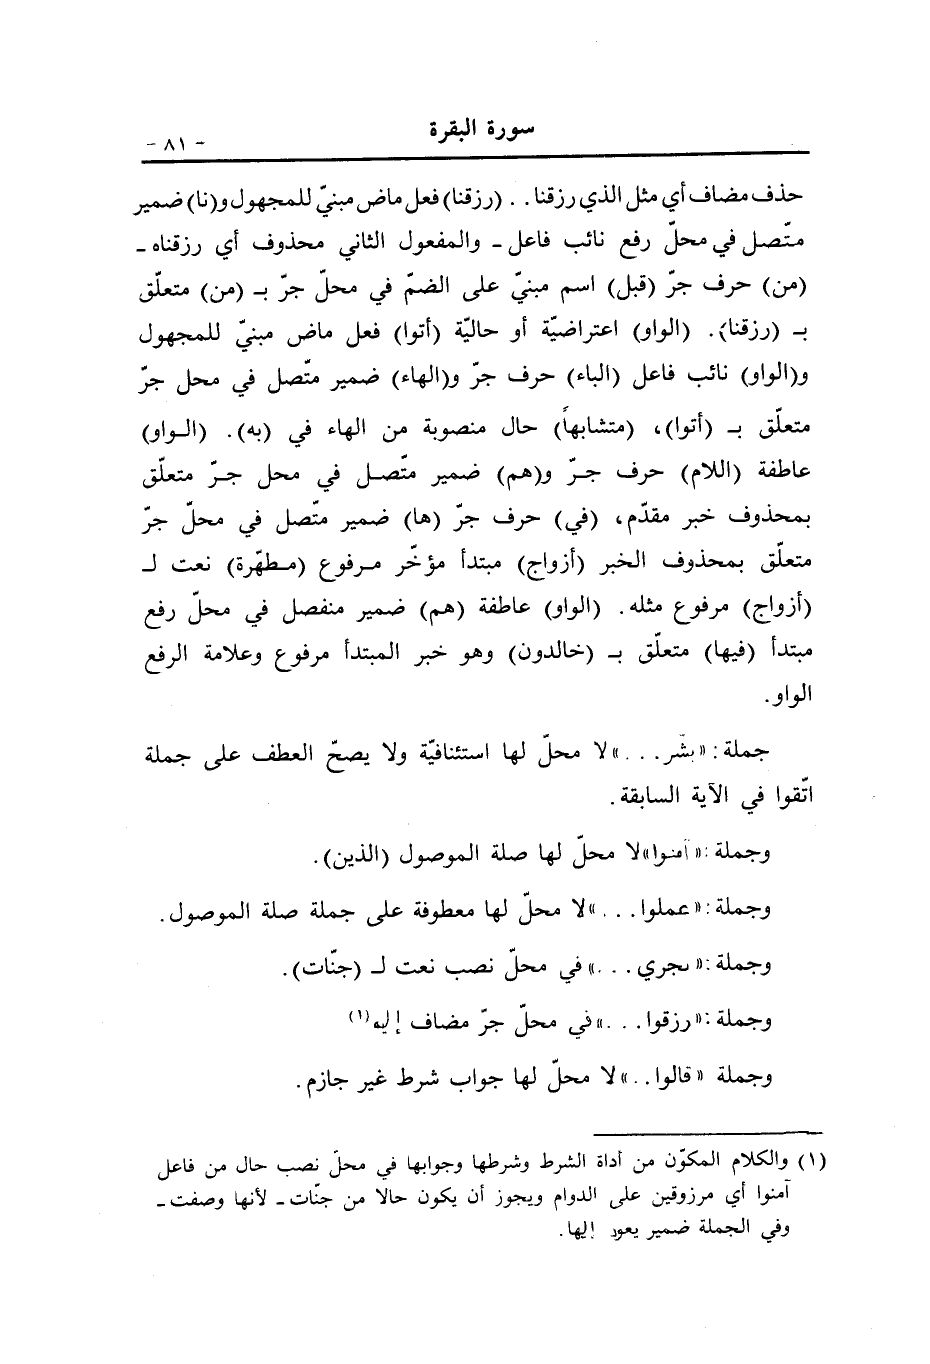 سورة البقرة
- ٨١ -
حذف مضاف أي مثل الذي رزقنا . . (رزقنا) فعل ماض مبنيّ للمجهول و(نا) ضمير
متّصل في محلّ رفع نائب فاعل ـ والمفعول الثاني محذوف أي رزقناه ـ
(من) حرف جرّ (قبل) اسم مبنيّ على الضمّ في محلّ جرّ بـ (من) متعلّق
بـ (رزقنا). (الواو) اعتراضيّة أو حاليّة (أتوا) فعل ماض مبنيّ للمجهول
و(الواو) نائب فاعل (الباء) حرف جرّ و(الهاء) ضمير متّصل في محل جرّ
متعلّق بـ (أتوا)، (متشابهاً) حال منصوبة من الهاء في (به). (الـواو)
عاطفة (اللام) حرف جـرّ و(هم) ضمير متّصـل في محل جـرّ متعلّق
بمحذوف خبر مقدّم، (في) حرف جرّ (ها) ضمير متّصل في محلّ جرّ
متعلّق بمحذوف الخبر (أزواج) مبتدأ مؤخّر مـرفوع (مـطهّرة) نعت لـ
(أزواج) مرفوع مثله. (الواو) عاطفة (هم) ضمير منفصل في محلّ رفع
مبتدأ (فيها) متعلّق بـ (خالدون) وهو خبر المبتدأ مرفوع وعلامة الرفع
الواو.
جملة: «بشّر . . .» لا محلّ لها استئنافيّة ولا يصحّ العطف على جملة
اتّقوا في الآية السابقة.
وجملة: «آمنوا» لا محلّ لها صلة الموصول (الذين).
وجملة: «عملوا . . .» لا محلّ لها معطوفة على جملة صلة الموصول.
وجملة: «تجري . . .» في محلّ نصب نعت لـ (جنّات).
وجملة: «رزقوا . . .» في محلّ جرّ مضاف إليه(١)
وجملة «قالوا . .» لا محلّ لها جواب شرط غير جازم.
(١) والكلام المكوّن من أداة الشرط وشرطها وجوابها في محلّ نصب حال من فاعل
آمنوا أي مرزوقين على الدوام ويجوز أن يكون حالا من جنّات ـ لأنها وصفت ـ
وفي الجملة ضمير يعود إليها.